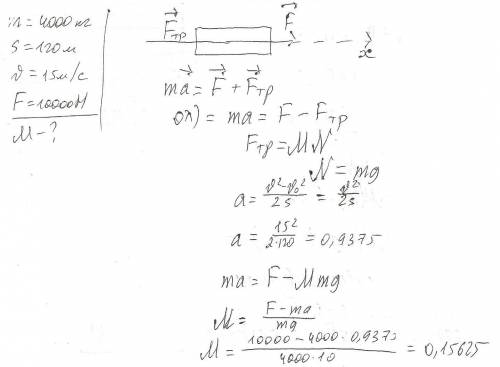 m = 4000 кг
S = 120 м
υ = 15 м/с
F = 10000 Н
M - ?
F⃗тр
F⃗
x
ma⃗ = F⃗ + F⃗тр
ох) = ma = F - Fтр
Fтр = MN
N = mg
a = υ² - υ₀² / 2s = υ² / 2s
a = 15² / 2·120 = 0,9375
ma = F - Mmg
M = F - ma / mg
M = 10000 - 4000 · 0,9375 / 4000·10 = 0,15625